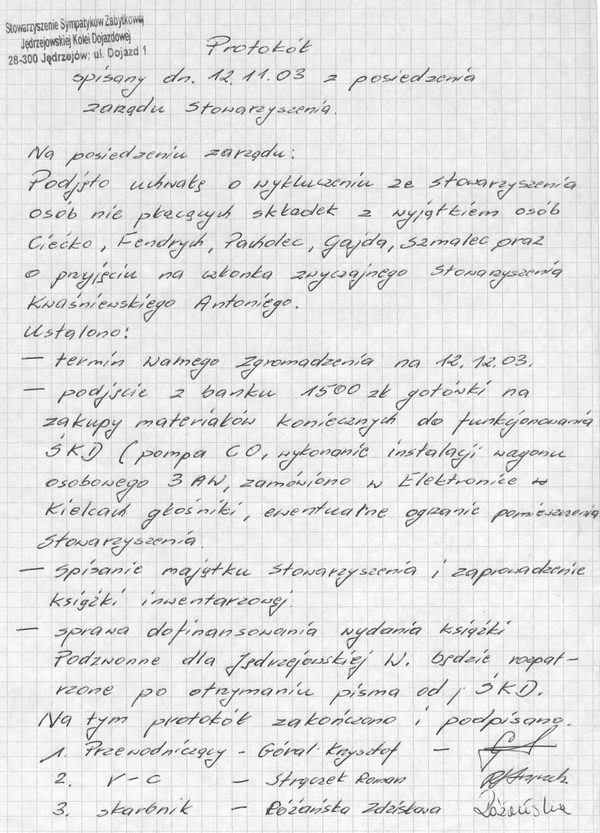 Stowarzyszenie Sympatyków Zabytkowej
Jędrzejowskiej Kolei Dojazdowej
28-300 Jędrzejów; ul. Dojazd 1
Protokół
spisany dn. 12.11.03 z posiedzenia
zarządu Stowarzyszenia.
Na posiedzeniu zarządu:
Podjęto uchwałę o wykluczeniu ze Stowarzyszenia
osób nie płacących składek z wyjątkiem osób
Ciećko, Fendrych, Pacholec, Gajda, Szmalec oraz
o przyjęciu na członka zwyczajnego Stowarzyszenia
Kwaśniewskiego Antoniego.
Ustalono:
— termin walnego Zgromadzenia na 12.12.03.
— podjęcie z banku 1500 zł gotówki na
zakupy materiałów koniecznych do funkcjonowania
ŚKD (pompa CO, wykonanie instalacji wagonu
osobowego 3 AW, zamówiono w Elektronice w
Kielcach głośniki, ewentualne ogrzanie pomieszczenia
Stowarzyszenia
— spisanie majątku Stowarzyszenia i zaprowadzenie
książki inwentarzowej
— sprawa dofinansowania wydania książki
Podzwonne dla Jędrzejowskiej W. będzie rozpat-
rzone po otrzymaniu pisma od j ŚKD.
Na tym protokół zakończono i podpisano.
1. Przewodniczący - Góral Krzysztof —
2. V-C — Strączek Roman
3. skarbnik — Różańska Zdzisława Różańska